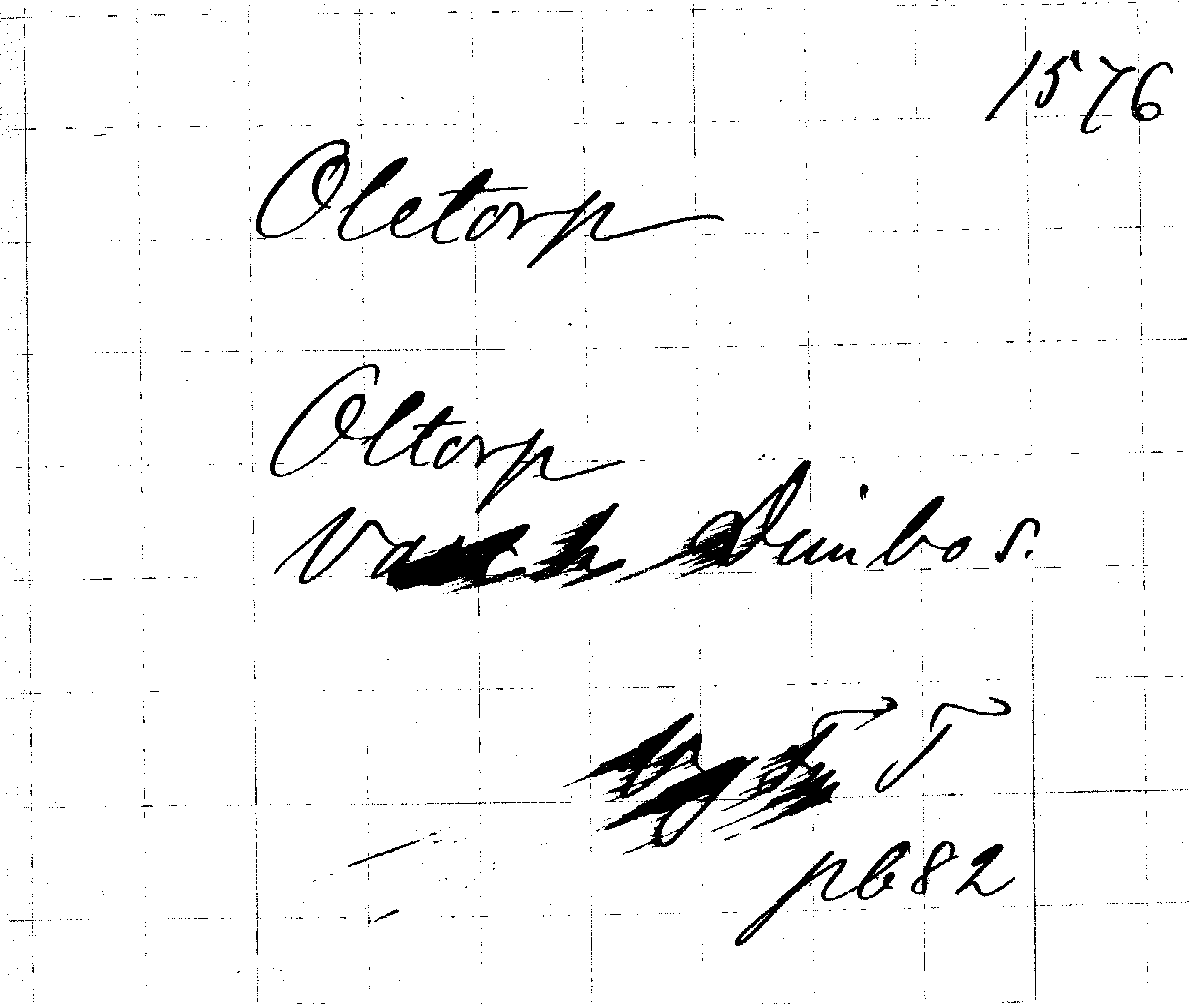 1576
Oletorp
Oltorp
Dimbo s.
T
p682